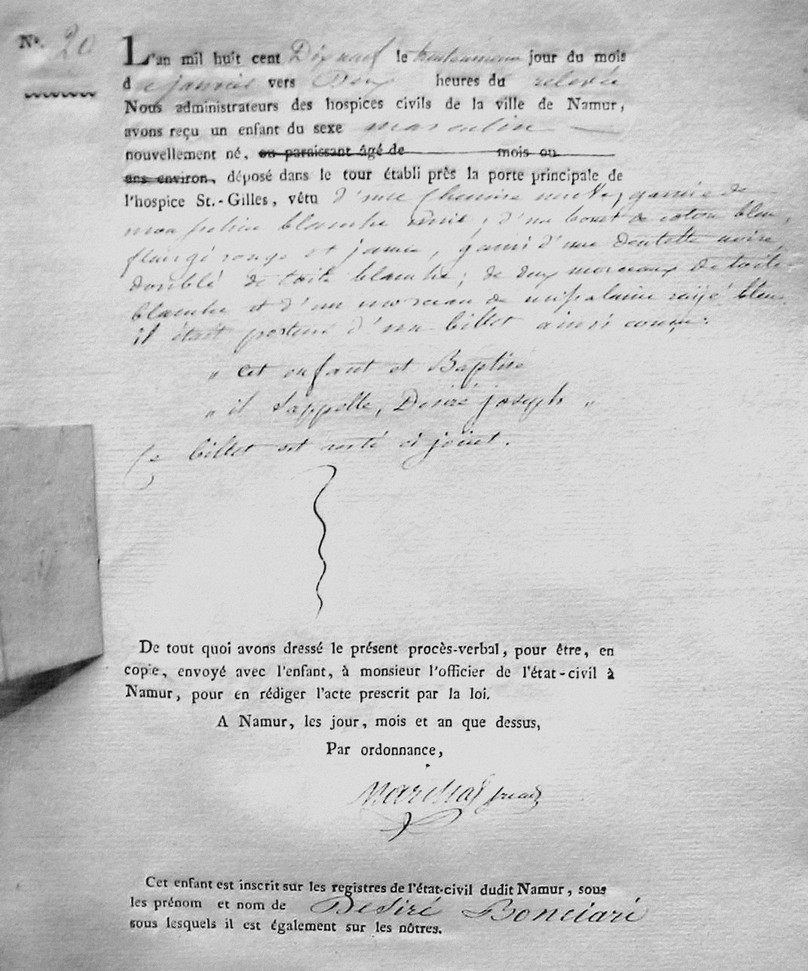 N°. 20
L'an mil huit cent Dix neuf le jour du mois
d e janvier vers Deux heures du relevée
Nous administrateurs des hospices civils de la ville de Namur,
avons reçu un enfant du sexe masculin
nouvellement né, ou paraissant âgé de mois ou
ans environ, déposé dans le tour établi près la porte principale de
l'hospice St.-Gilles, vêtu d'une Chemise garnie de
blanche unie ; d'un bonet de coton bleu,
rouge et jaune, garni d'une dentelle noire,
doublé de toile blanche ; de deux morceaux de toile
blanche et d'un morceau de rayé bleu.
il était porteur d'un billet ainsi conçu :
" cet enfant et Baptise
" il s'appelle, Desiré joseph "
Ce billet est resté ci joint.
De tout quoi avons dressé le présent procès-verbal, pour être, en
copie, envoyé avec l'enfant, à monsieur l'officier de l'état-civil à
Namur, pour en rédiger l'acte prescrit par la loi.
A Namur, les jour, mois et an que dessus,
Par ordonnance,
Cet enfant est inscrit sur les registres de l'état-civil dudit Namur, sous
les prénom et nom de Desiré Bonciari
sous lesquels il est également sur les nôtres.